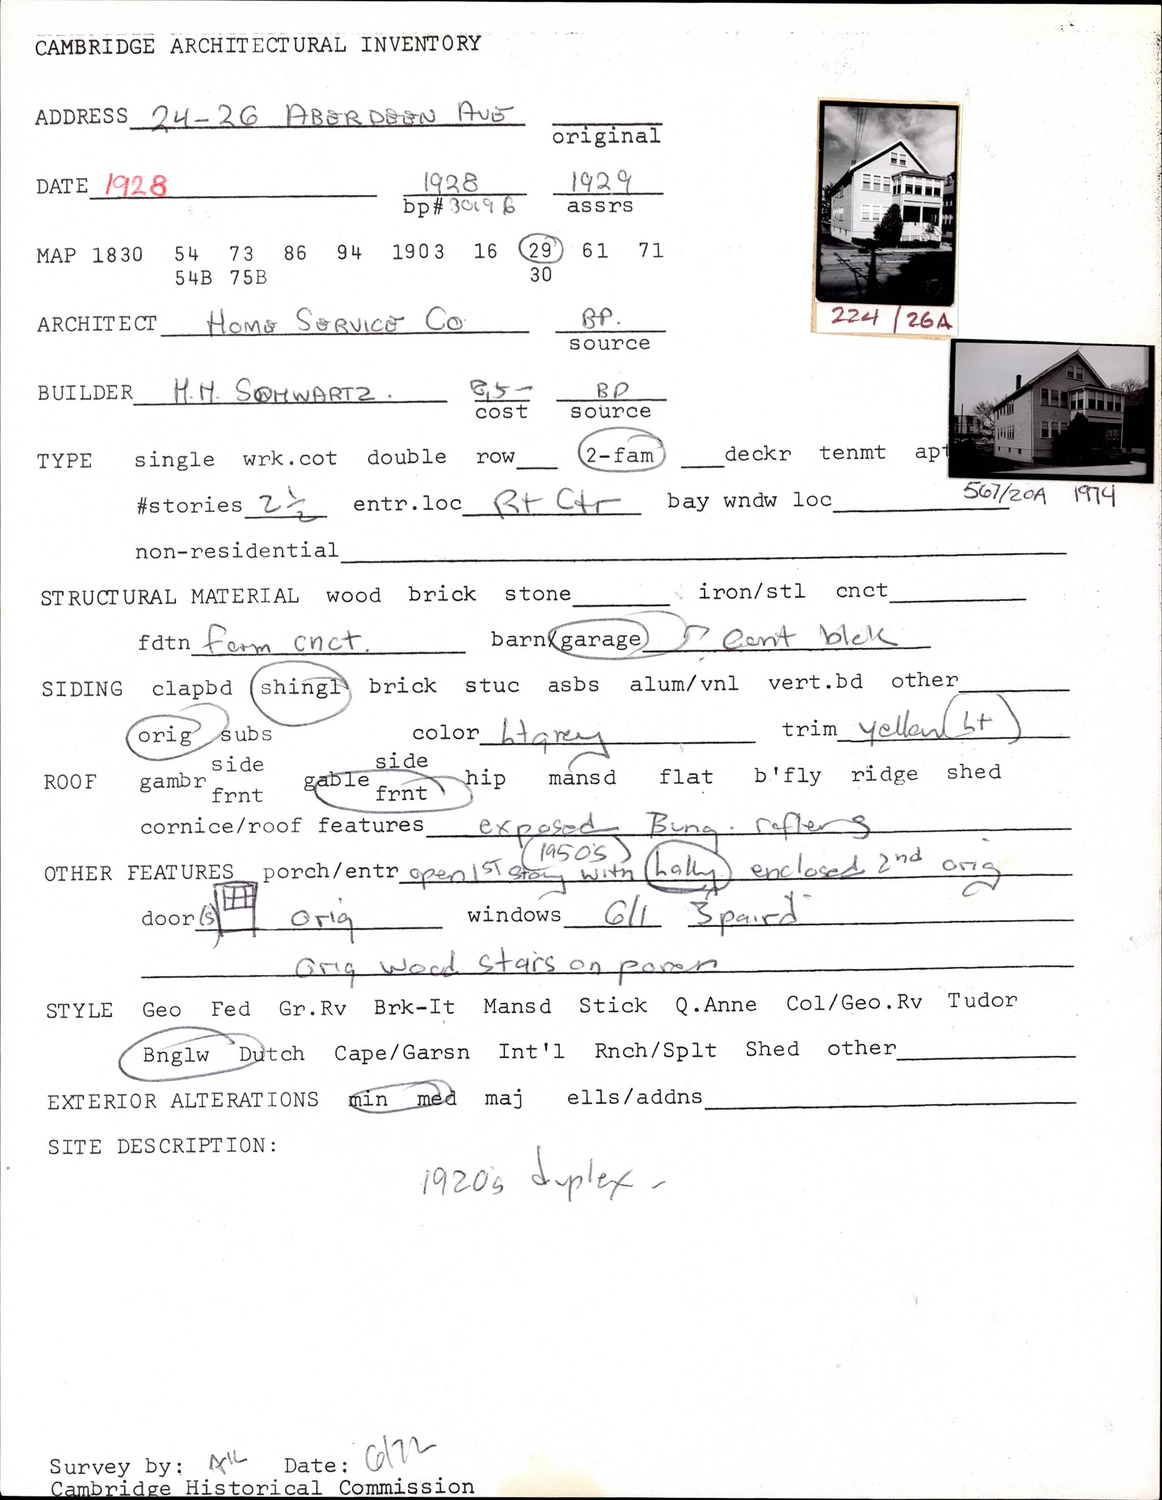 CAMBRIDGE ARCHITECTURAL INVENTORY
ADDRESS 24-26 ABERDEEN AVE original
DATE 1928 1928 bp# 30196 1929 assrs
MAP 1830 54 73 86 94 1903 16 29 61 71
54B 75B 30
224/26A
ARCHITECT HOME SERVICE CO BP. source
BUILDER H.H. SCHWARTZ. cost BP source
TYPE single wrk.cot double row 2-fam deckr tenmt apt
567/20A 1974
#stories 2 1/2 entr.loc Rt Ctr bay wndw loc
non-residential
STRUCTURAL MATERIAL wood brick stone iron/stl cnct
fdtn form cnct. barn/garage cent blck
SIDING clapbd shingl brick stuc asbs alum/vnl vert.bd other
orig subs color lt grey trim yellow (lt)
ROOF gambr side frnt gable side frnt hip mansd flat b'fly ridge shed
cornice/roof features exposed Bung. rafters
(1950's)
OTHER FEATURES porch/entr open 1st story with enclosed 2nd orig
door(s) orig windows 6/1 3 paird
Orig wood stairs on
STYLE Geo Fed Gr.Rv Brk-It Mansd Stick Q.Anne Col/Geo.Rv Tudor
Bnglw Dutch Cape/Garsn Int'l Rnch/Splt Shed other
EXTERIOR ALTERATIONS min med maj ells/addns
SITE DESCRIPTION:
1920's duplex -
Survey by: Date: 6/72
Cambridge Historical Commission